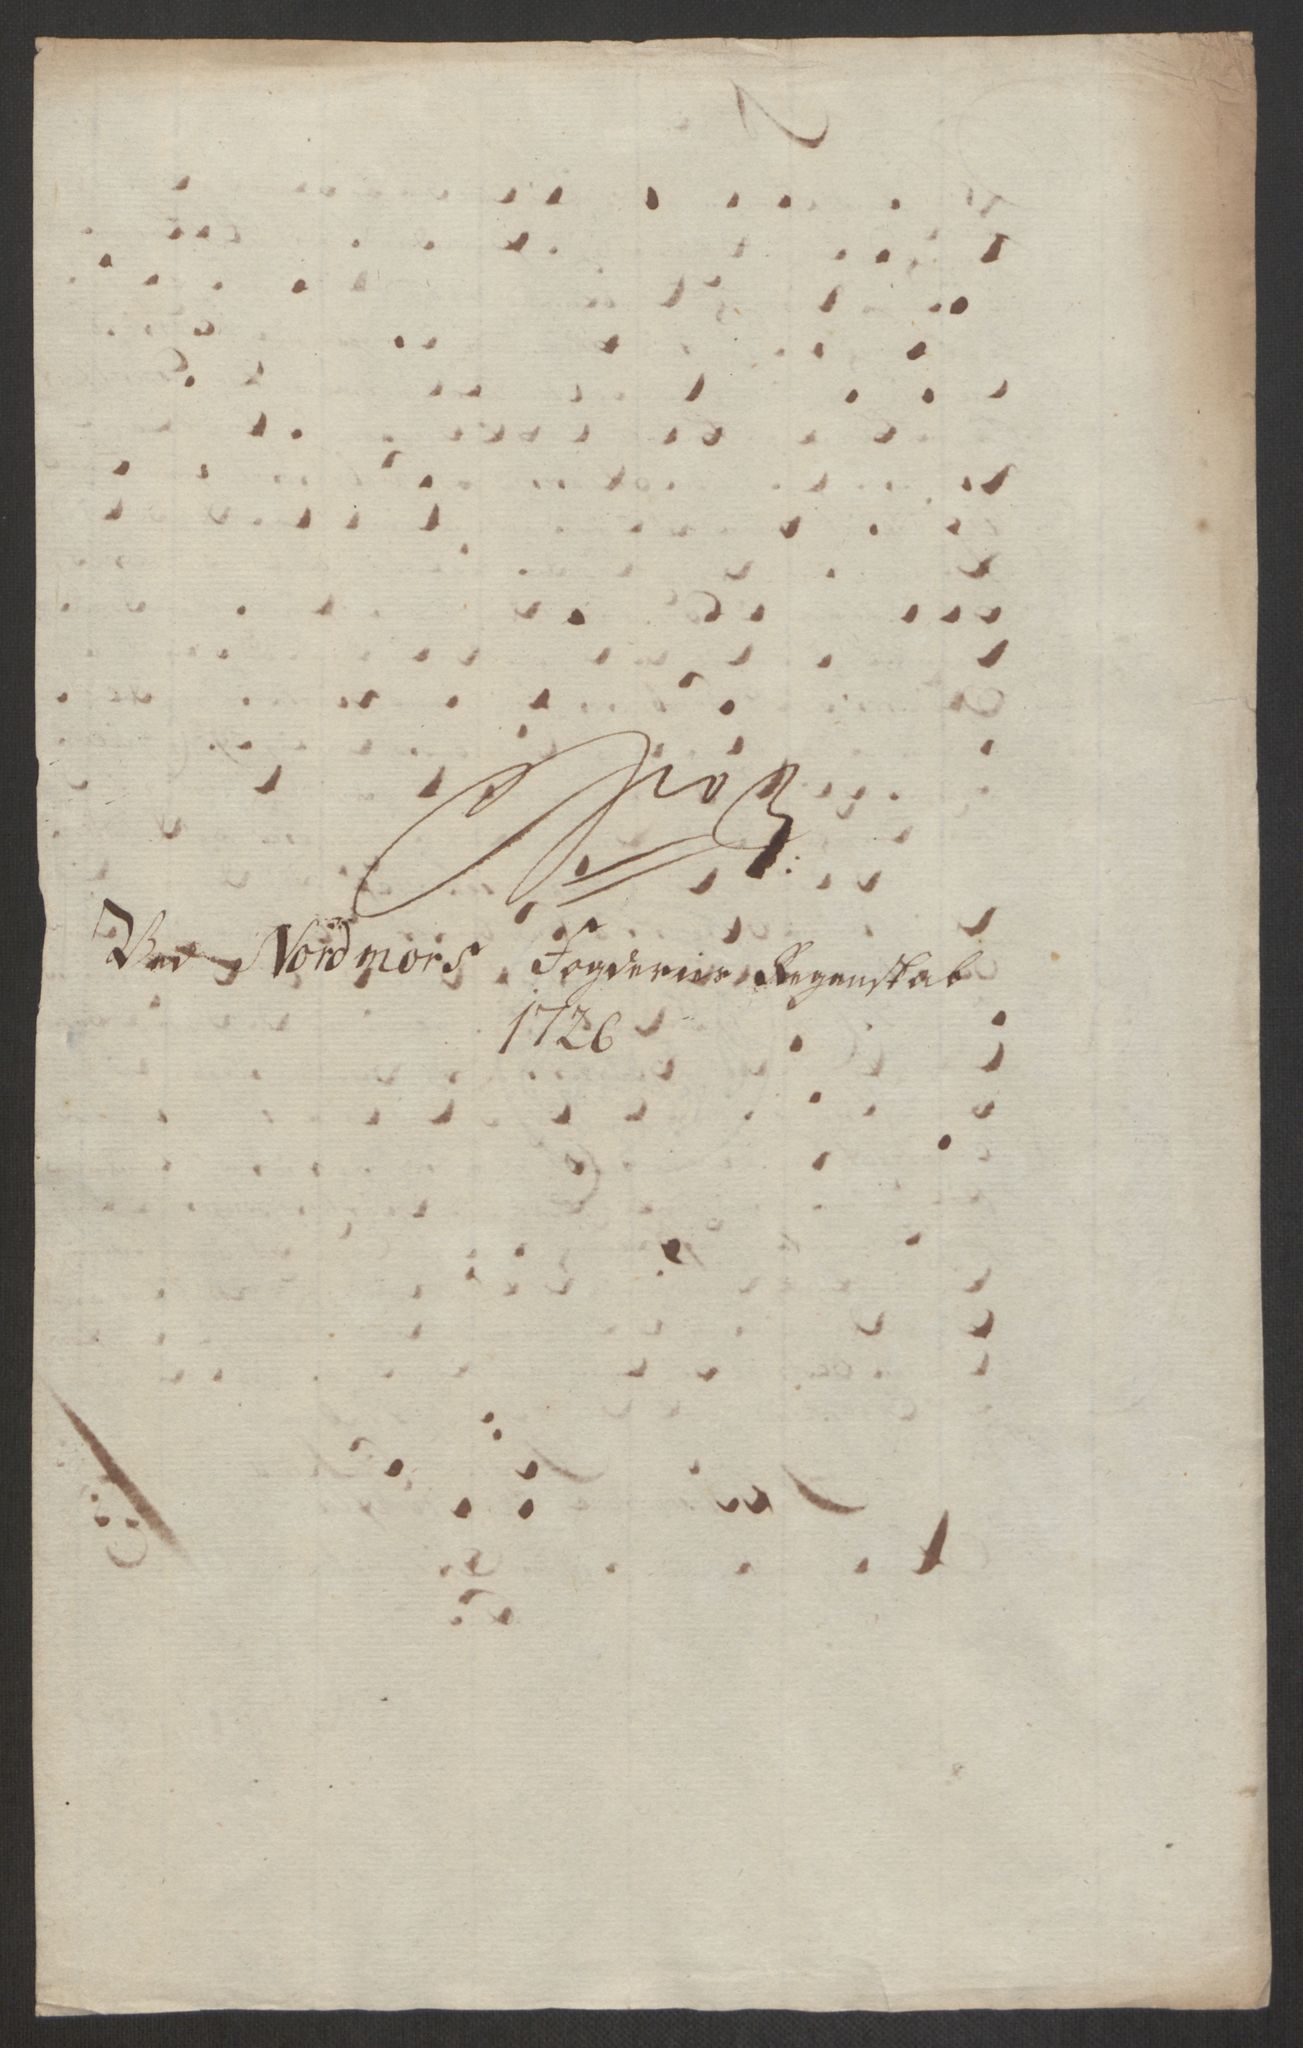 No 3:
Ved Nordmørs Fogderies Regenskab
1726